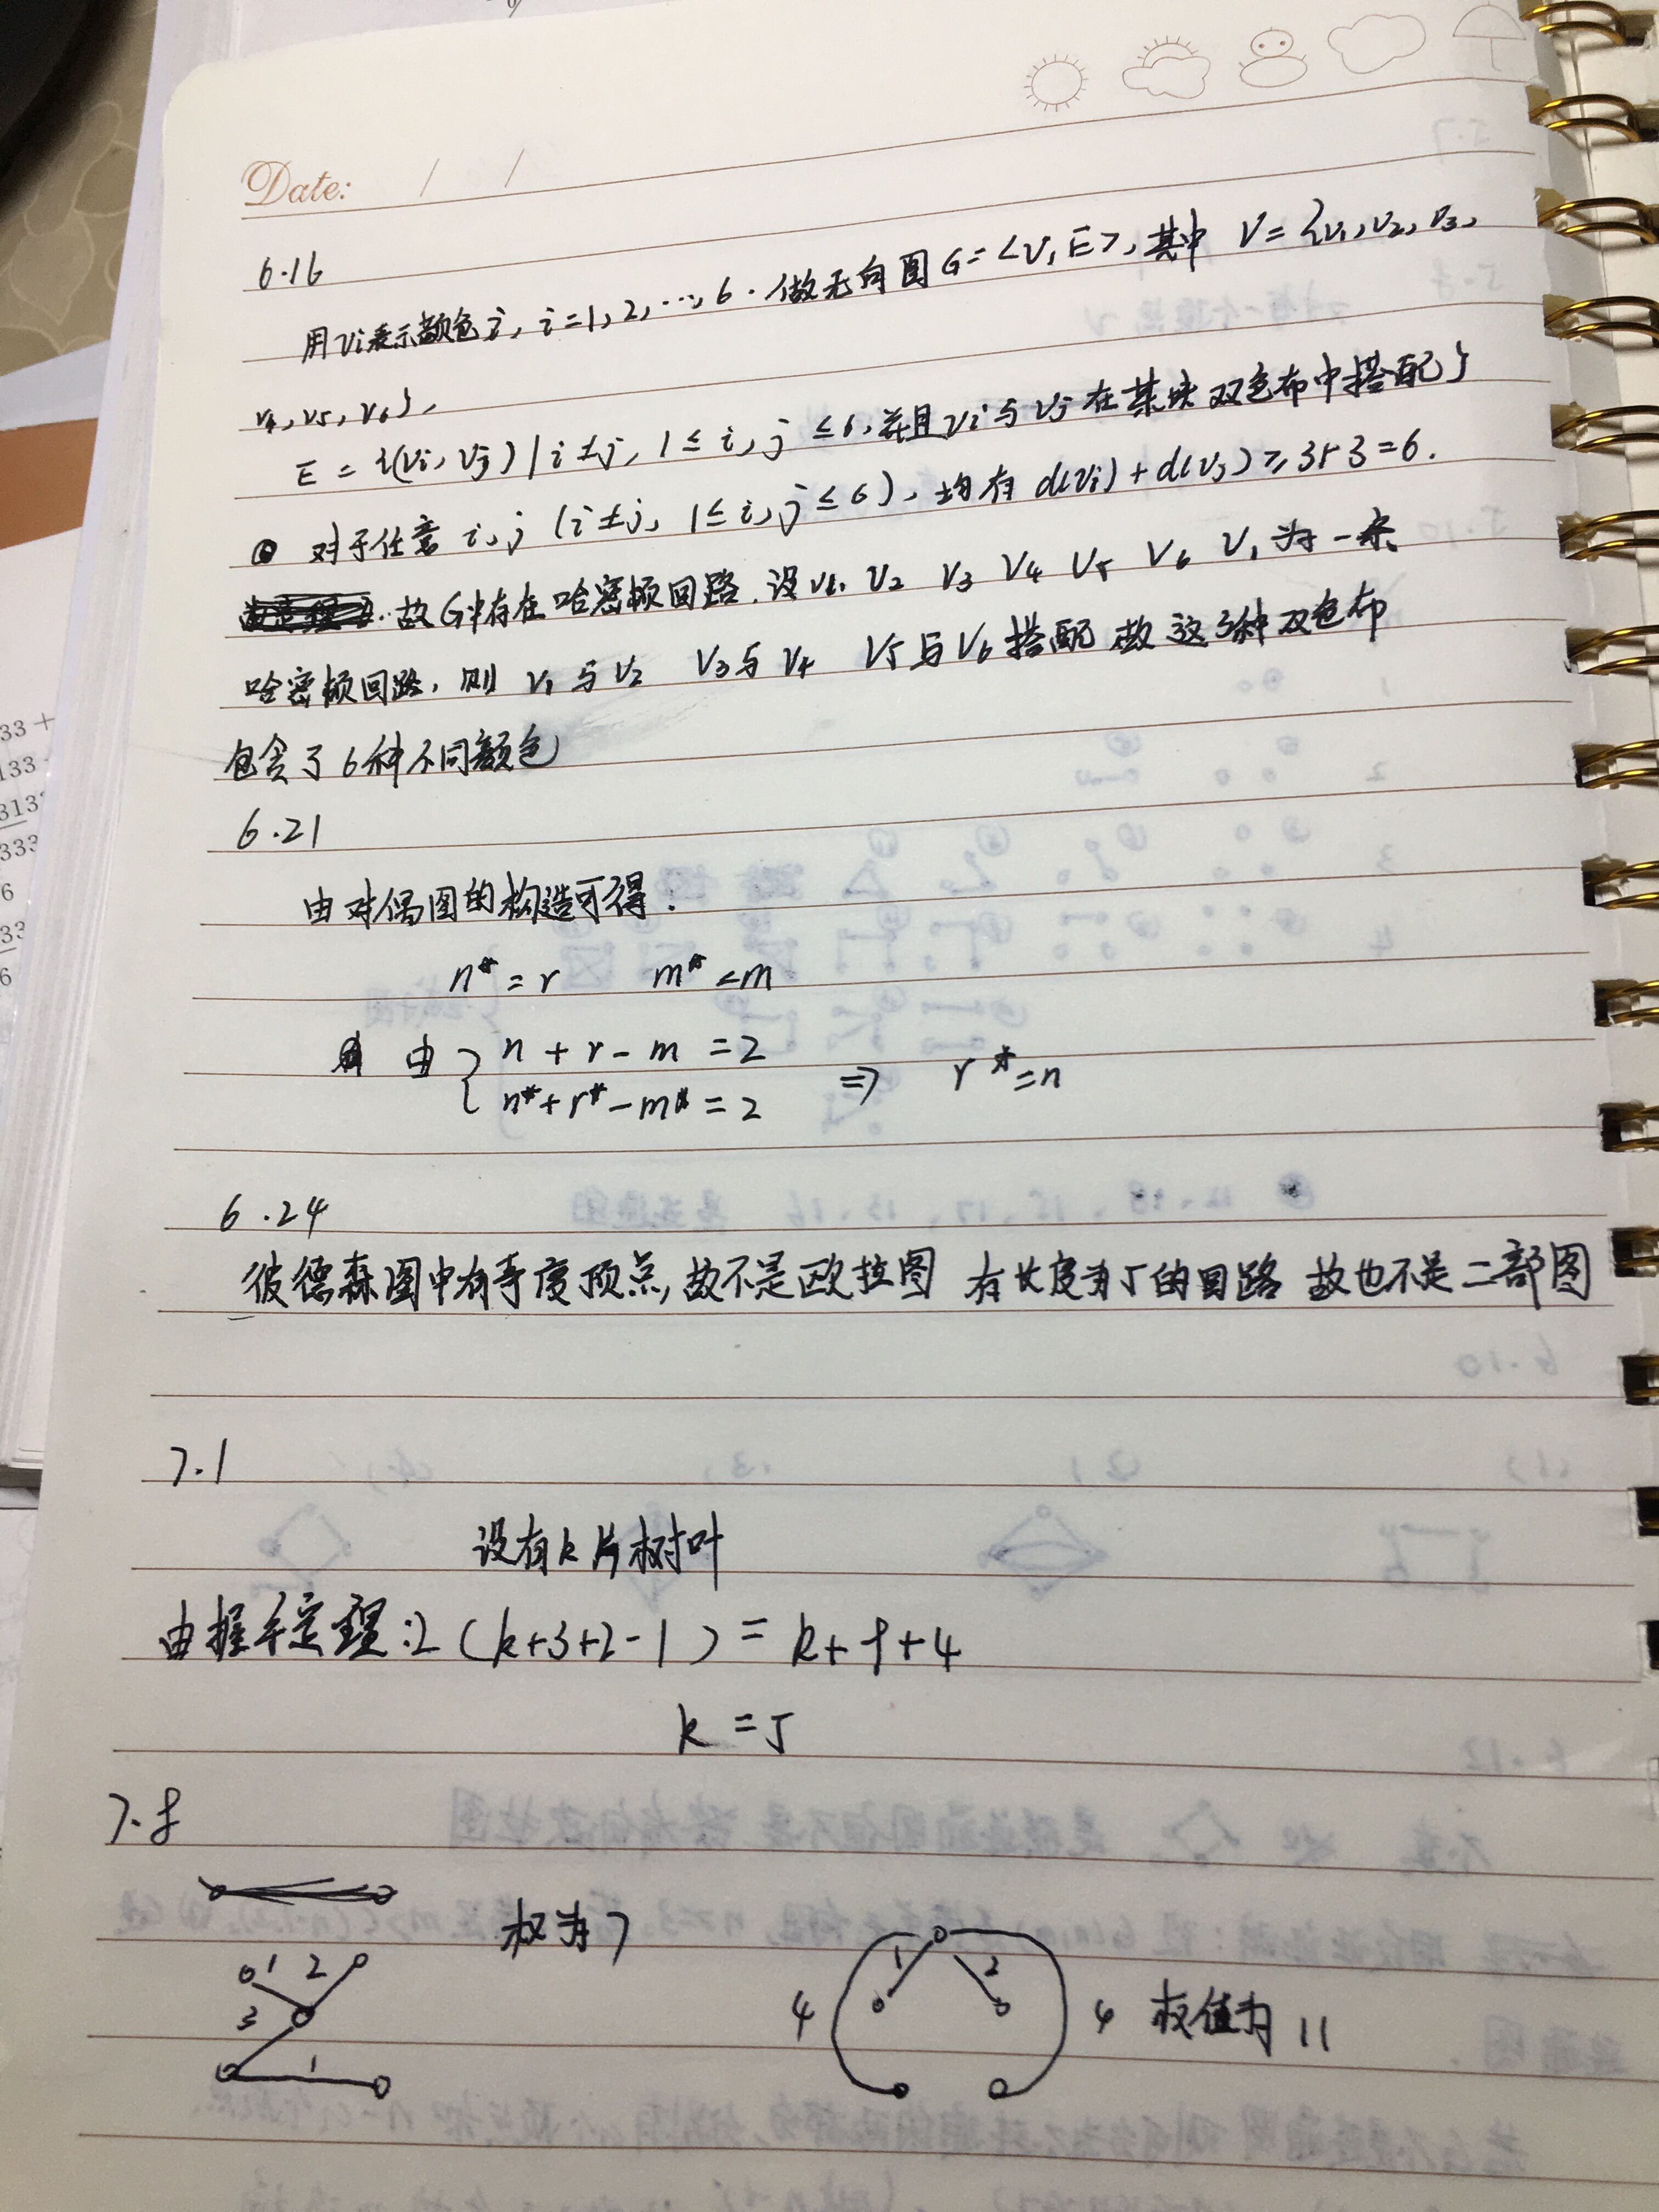 Date: / /
6.16
用vi表示颜色i, i=1,2,…,6. 做无向图G=<V,E>,其中 V={v1,v2,v3,
v4,v5,v6},
E={(vi,vj)|i≠j, 1≤i,j≤6,并且vi与vj在某块双色布中搭配}
对于任意 i,j (i≠j, 1≤i,j≤6),均有 d(vi)+d(vj)≥3+3=6.
故G中存在哈密顿回路.设v1 v2 v3 v4 v5 v6 v1 为一条
哈密顿回路,则 v1与v2 v3与v4 v5与v6搭配 故这3种双色布
包含了6种不同颜色
6.21
由对偶图的构造可得:
n*=r m*=m
由 { n+r-m=2
n*+r*-m*=2 ⇒ r*=n
6.24
彼德森图中有奇度顶点,故不是欧拉图 有长度为5的回路 故也不是二部图
7.1
设有k片树叶
由握手定理:2(k+3+2-1)=k+9+4
k=5
7.8
权为7
1 2
3
1
1 2
4 4 权值为11
33+
133
313
333
6
33
6